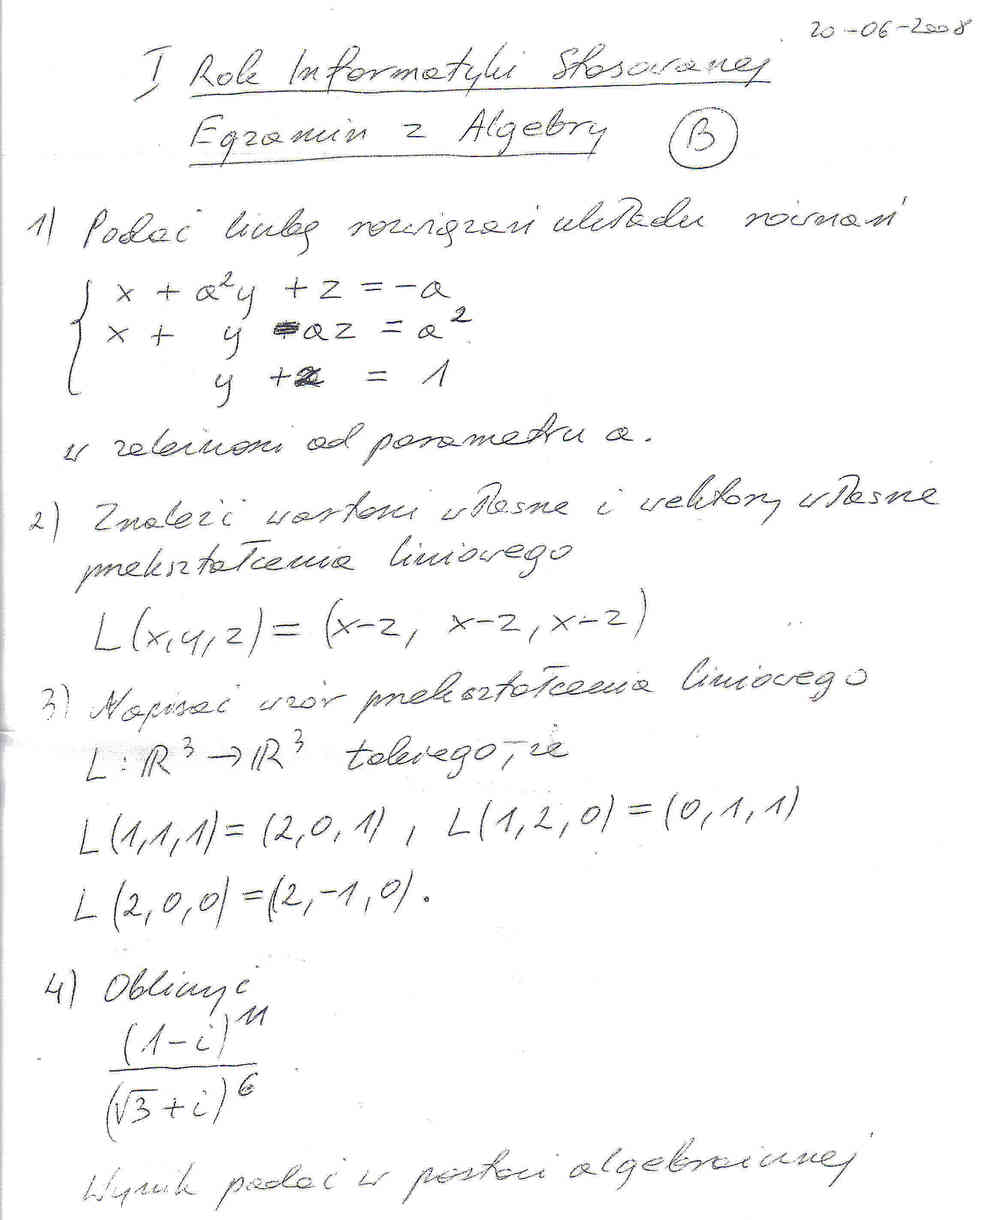 20-06-2008
I Rok Informatyki Stosowanej
Egzamin z Algebry (B)
1) Podać liczbę rozwiązań układu równań
x + a²y + z = -a
x + y - az = a²
y + z = 1
w zależności od parametru a.
2) Znaleźć wartości własne i wektory własne
przekształcenia liniowego
L(x,y,z) = (x-z, x-z, x-z)
3) Napisać wzór przekształcenia liniowego
L: ℝ³ → ℝ³ takiego, że
L(1,1,1) = (2,0,1), L(1,2,0) = (0,1,1)
L(2,0,0) = (2,-1,0).
4) Obliczyć
(1-i)¹¹
(√3+i)⁶
Wynik podać w postaci algebraicznej